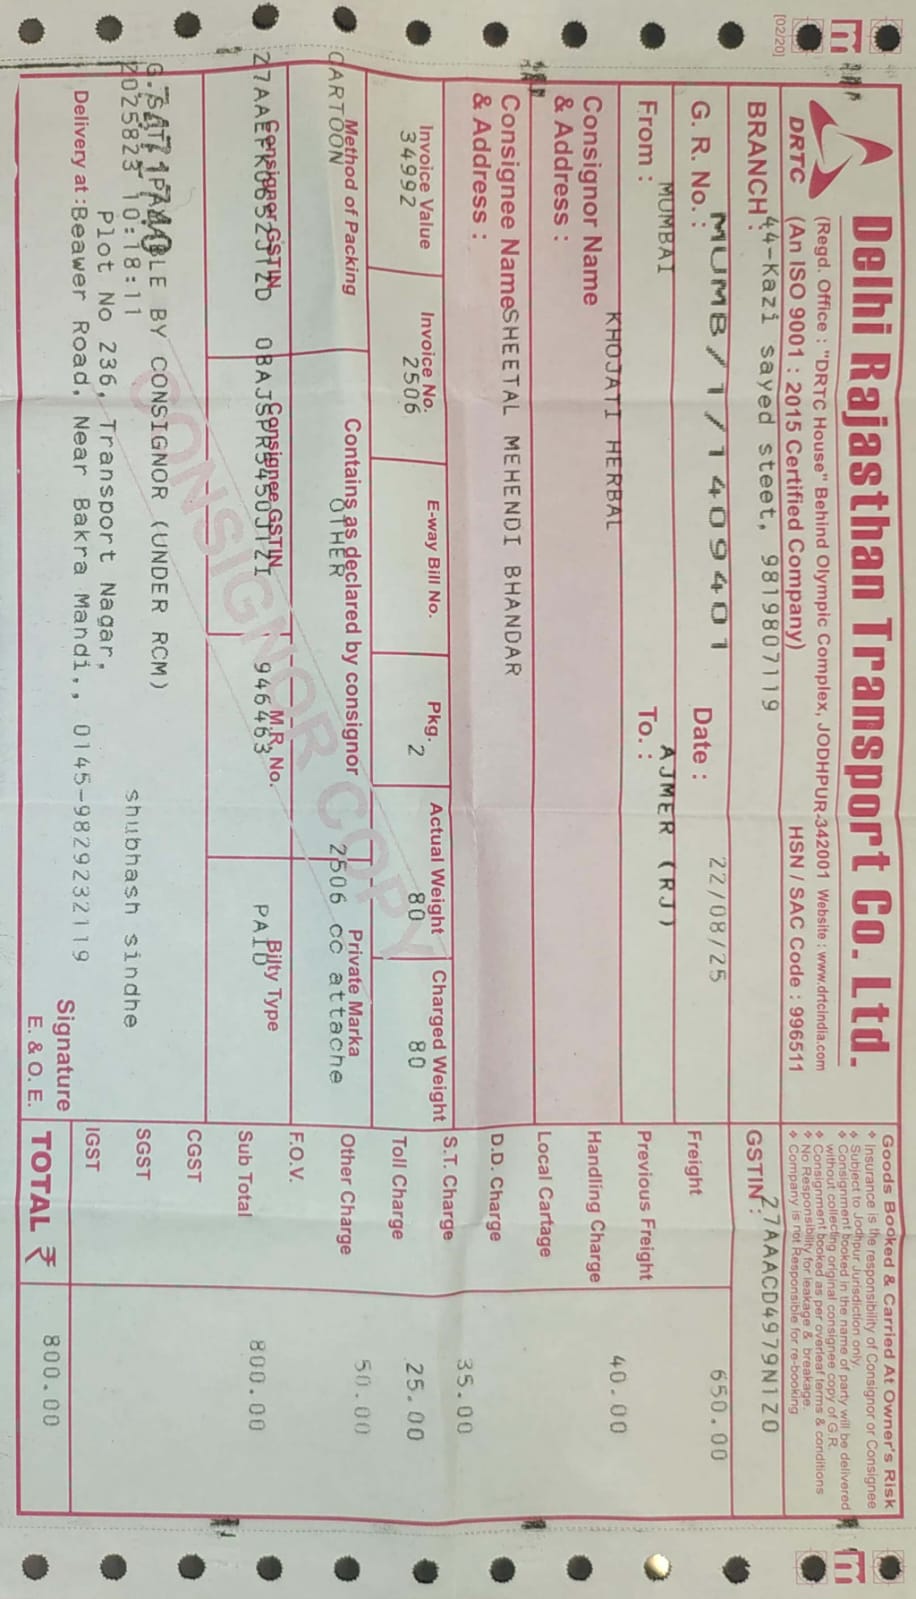 [02/20]
DRTC
Delhi Rajasthan Transport Co. Ltd.
(Regd. Office : "DRTC House" Behind Olympic Complex, JODHPUR-342001 Website : www.drtcindia.com
(An ISO 9001 : 2015 Certified Company) HSN / SAC Code : 996511
Goods Booked & Carried At Owner's Risk
❖ Insurance is the responsibility of Consignor or Consignee
❖ Subject to Jodhpur Jurisdiction only.
❖ Consignment booked in the name of party will be delivered
without collecting original consignee copy of G.R.
❖ Consignment booked as per overleaf terms & conditions
❖ No Responsibility for leakage & breakage.
❖ Company is not Responsible for re-booking
BRANCH : 44-Kazi sayed steet, 9819807119
GSTIN : 27AAACD4979N1Z0
G. R. No. : MUMB/1/1409401 Date : 22/08/25
Freight 650.00
From : MUMBAI To. : AJMER (RJ)
Previous Freight
Consignor Name KHOJATI HERBAL
& Address :
Handling Charge 40.00
Local Cartage
Consignee Name SHEETAL MEHENDI BHANDAR
& Address :
D.D. Charge
S.T. Charge 35.00
Invoice Value Invoice No. E-way Bill No. Pkg. Actual Weight Charged Weight
34992 2506 2 80 80
Toll Charge 25.00
Method of Packing Contains as declared by consignor Private Marka
CARTOON OTHER 2506 cc attache
Other Charge 50.00
F.O.V.
Consignor GSTIN Consignee GSTIN M.R. No. Bilty Type
946463 PAID
Sub Total 800.00
CONSIGNOR COPY
CGST
BY CONSIGNOR (UNDER RCM)
SGST
10:18:11 shubhash sindhe
Plot No 236, Transport Nagar,
IGST
Delivery at : Beawer Road, Near Bakra Mandi., 0145-9829232119
Signature
E. & O. E.
TOTAL ₹ 800.00